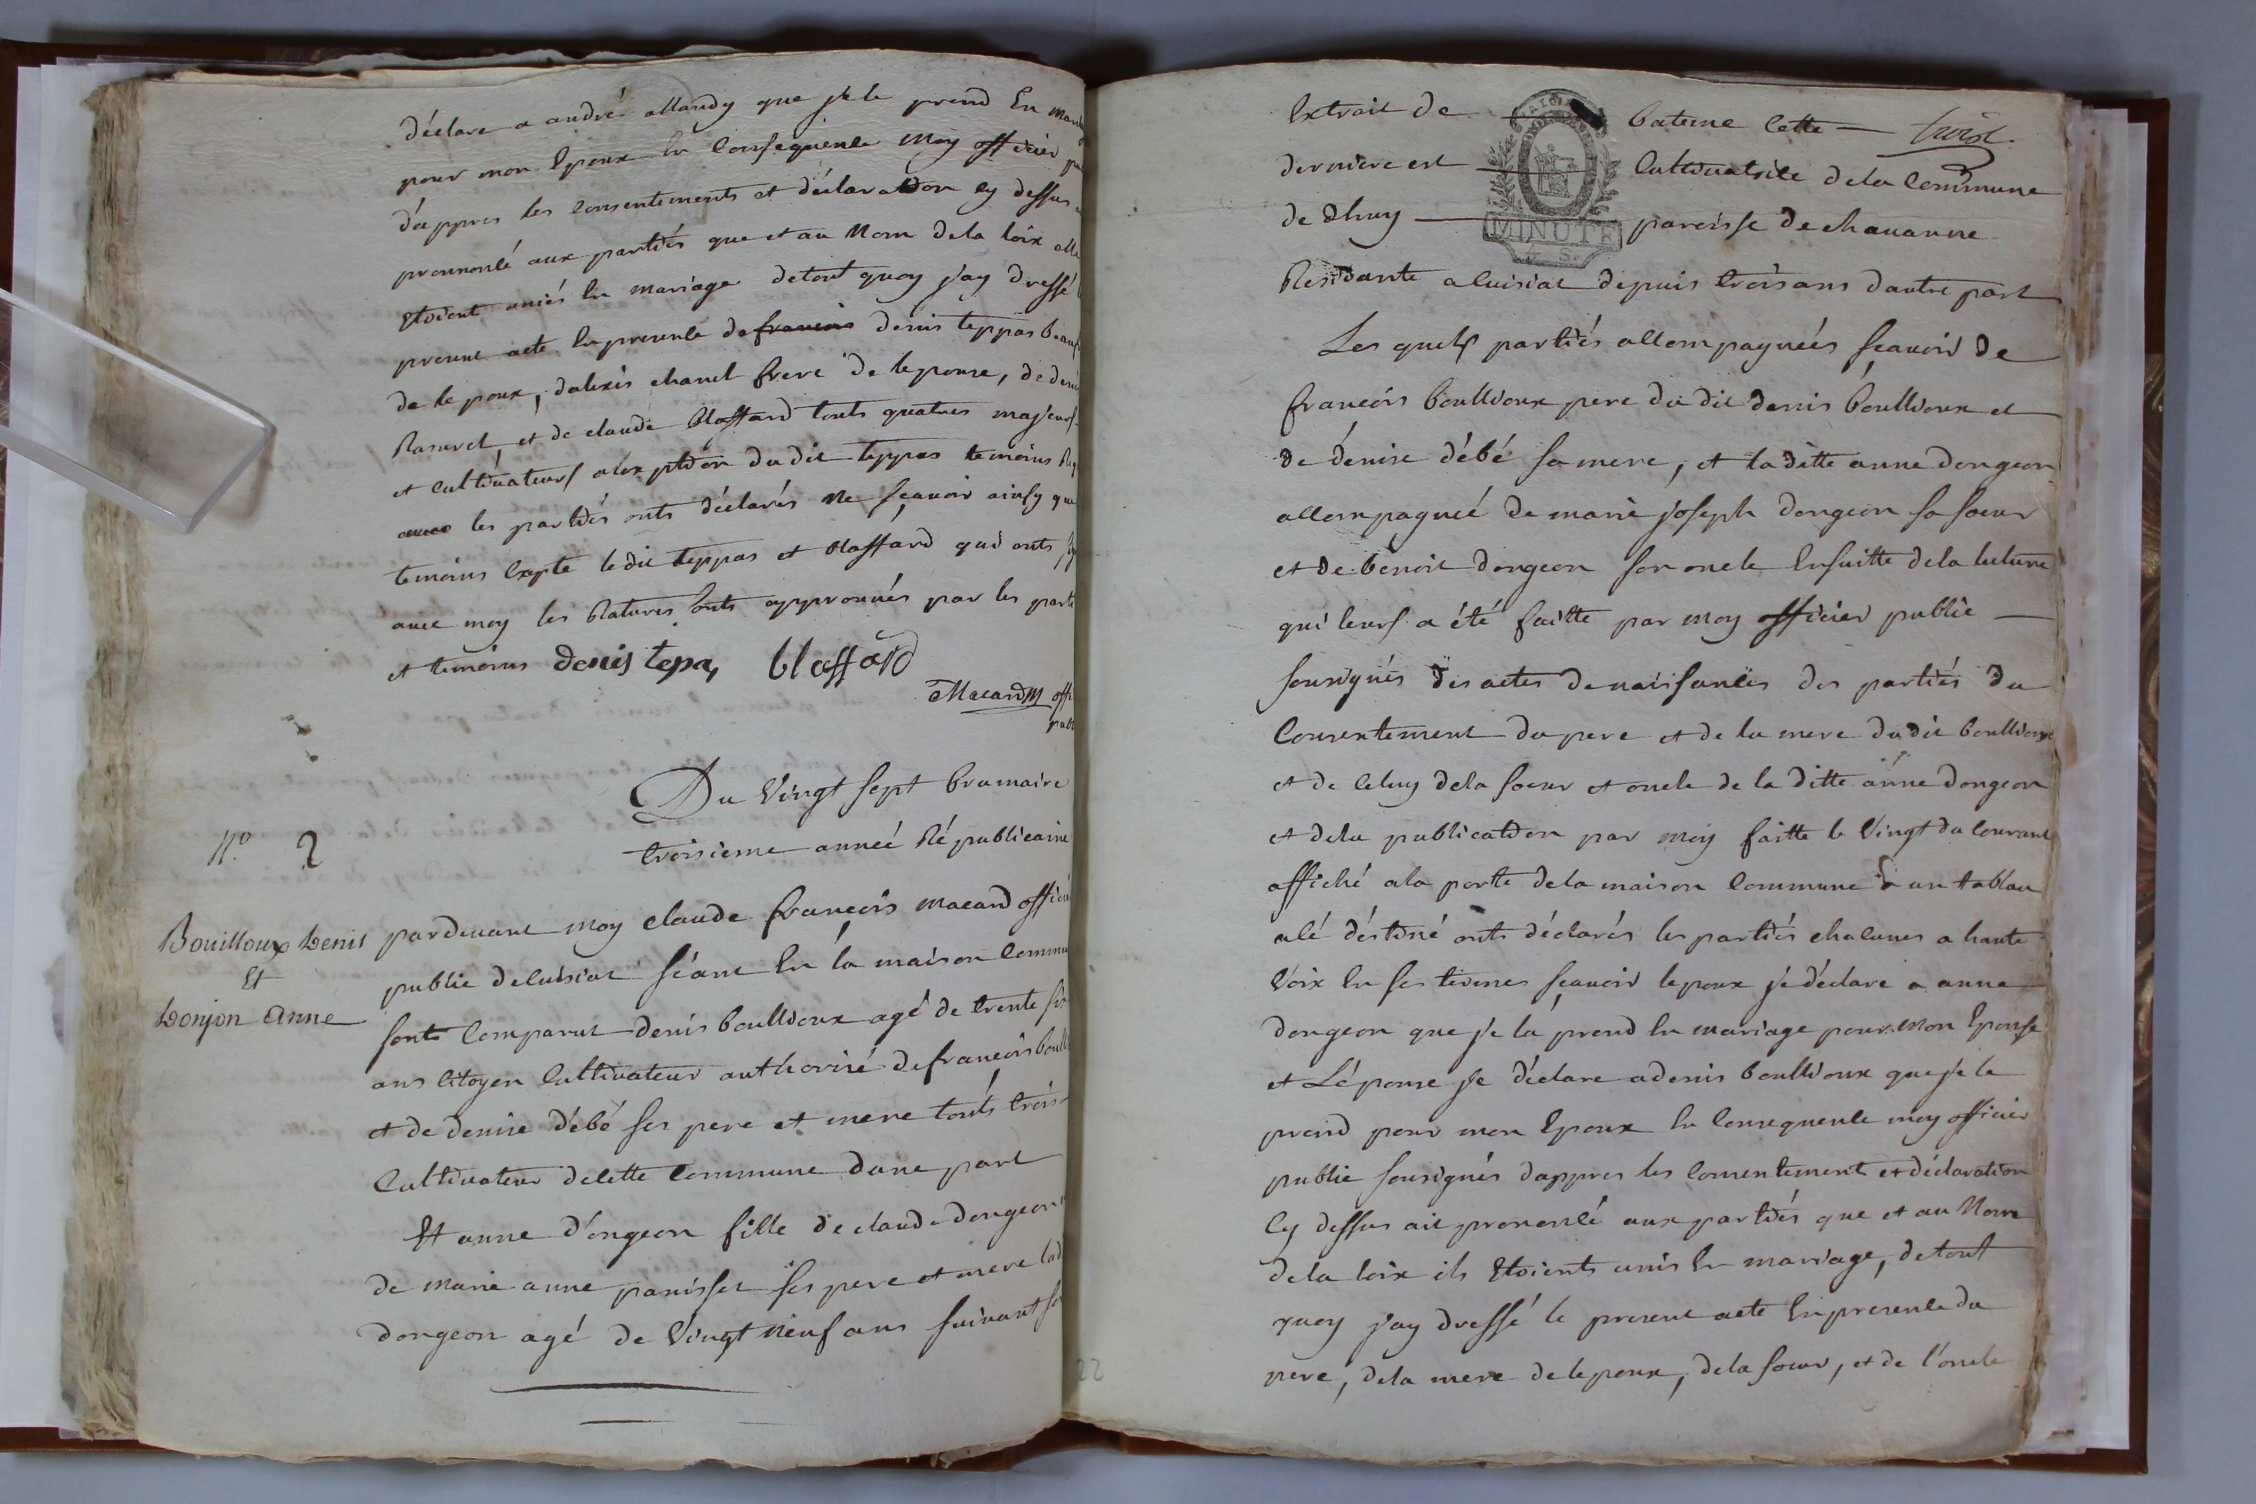 déclare a andré allandy que je le prend En
pour mon Epoux En Conséquence moy officier
d'appres les consentements et déclaration cy dessus
prononcé aux partiés que et au Nom dela loix
Etoient uniés En mariage detout quoy j'ay dressé
present acte En presence de francois denis teppas
de le poux, dalexis chanel frere de lepouse, de
Rasurel, et de claude blaffard touts quatres majeurs
et cultivateurs a lexption du dit teppas temoins
avec les partiés onts déclarés ne sçavoir ainsy que
temoins Expte le dit teppas et blaffard qui onts
avec moy les Ratures sonts approuvés par les
et temoins denis tepa, blaffard
Macard
Du Vingt sept brumaire
N.º 2
troisieme anneé Républicaine
Bouilloux Denis
Et
Donjon Anne
pardevant moy claude françois macard
public decuisiat séant En la maison
sonts Comparut denis boullioux agé de trente
ans Citoyen Cultivateur authorisé de françois
et de denise débé ses pere et mere touts trois
Cultivateur decette Commune dune part
Et anne d'ongeon fille de claude dongeon
de marie anne panisset ses pere et mere
dongeon agé de Vingt neuf ans suivant
Extrait de bateme cette
derniere est Cultivatrice dela Commune
de dhuy paroisse de chavanne
MINUTE
Residante a Cuisiat depuis trois ans dautre part
Les quels partiés accompagnées sçavoir de
françois boullioux pere du dit denis boullioux et
de denise débé sa mere, et la ditte anne dongeon
accompagneé de marie joseph dongeon sa soeur
et de benoit dongeon son oncle Ensuitte dela lecture
qui leurs a été faitte par moy officier public
sousignés des actes de naissances des partiés du
Consentement du pere et de la mere du dit boullioux
et de celuy dela soeur et oncle de la ditte anne dongeon
et dela publication par moy faitte le Vingt du Courant
affiché ala porte dela maison Commune a un tablau
a lé déstiné onts déclarés les partiés chacunes a haute
Voix En ses termes sçavoir lepoux je déclare a anne
dongeon que je la prend En mariage pour mon Epouse
et Lépouse je déclare a denis boullioux que je le
prend pour mon Epoux En Consequence moy officier
public sousignés dappres les Consentement et déclaration
Cy dessus ait prononcé aux partiés que et au Nom
dela loix ils Etoients unis En mariage, detout
quoy j'ay dressé le present acte En presence du
pere, dela mere de lepoux, dela soeur, et de l'oncle
22